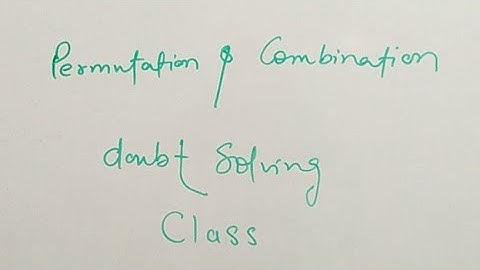 Permutation & Combination
doubt Solving
Class